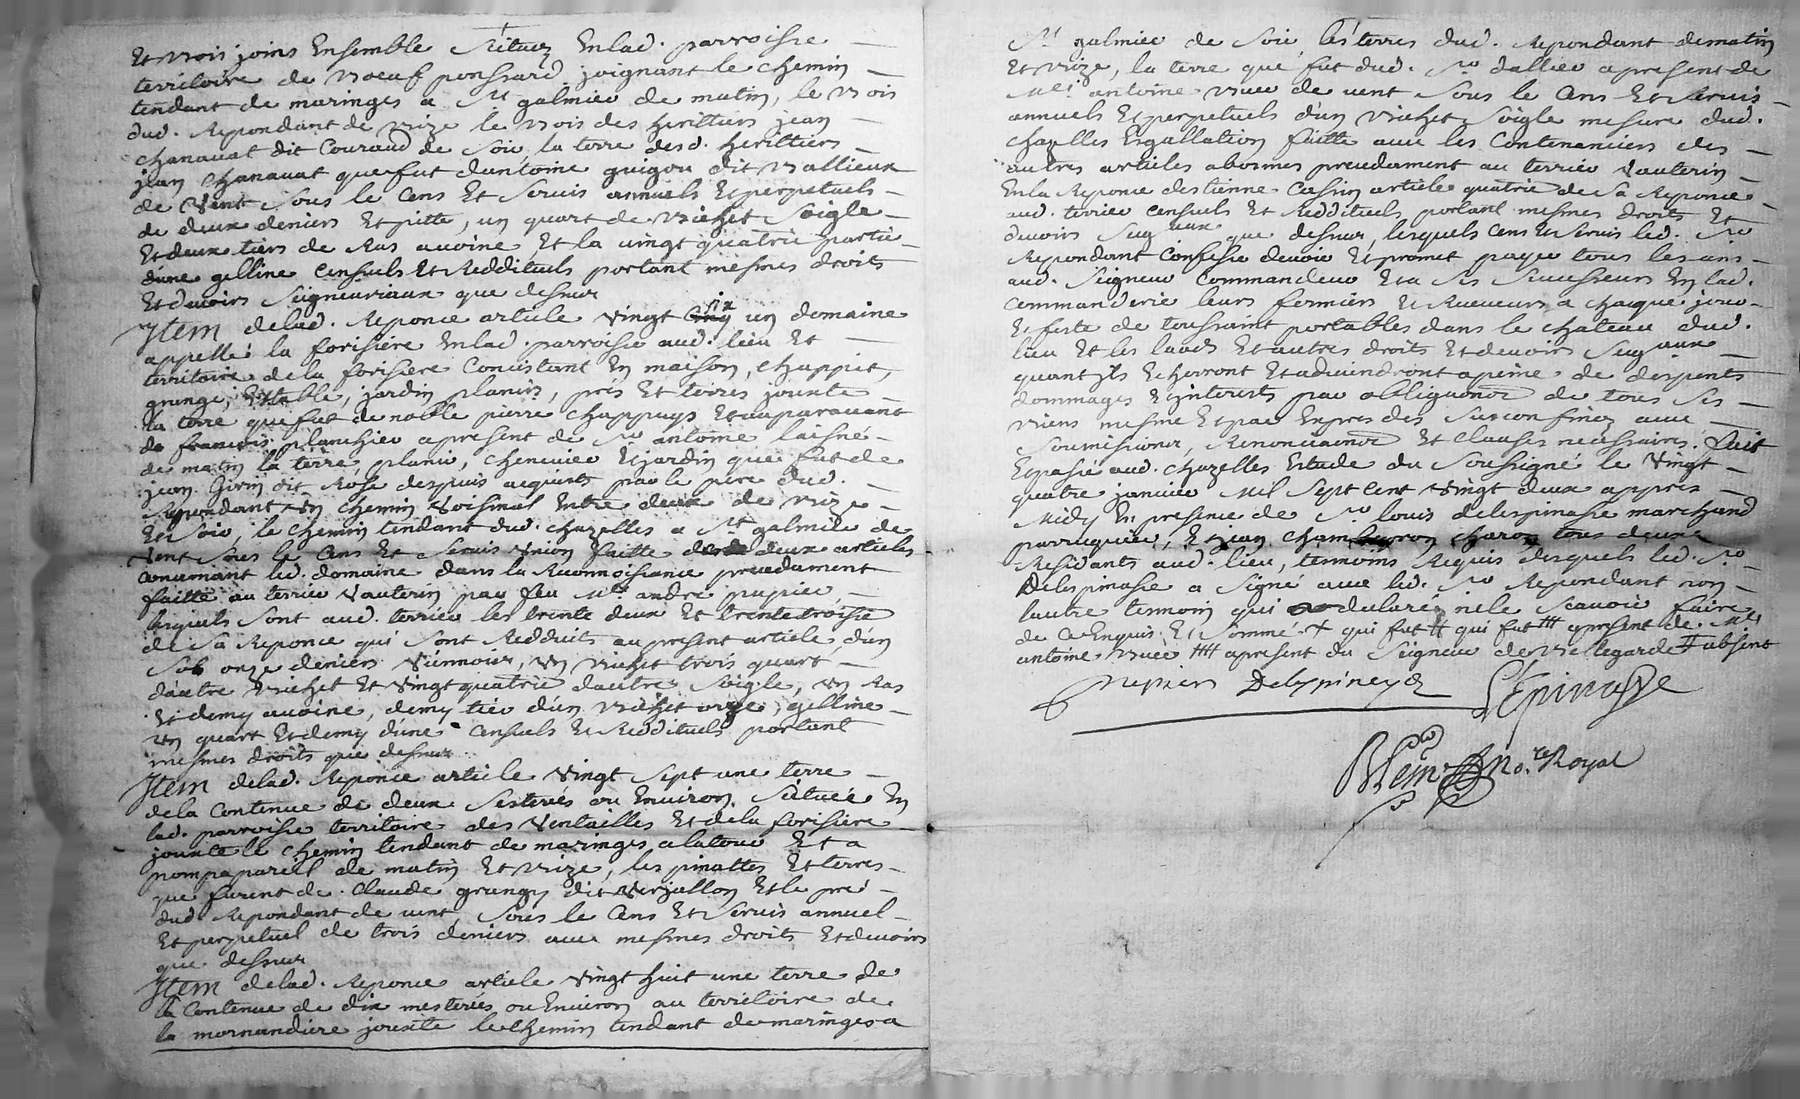 Et bois joins Ensemble scituez Enlad. parroisse
territoire de boeuf ponssard joignant le chemin
tendant de maringes a St galmier de matin, le bois
dud. Repondant de bize le bois des heritiers jean
chanavat dit Couraud de soir, la terre desd. heritiers
jean chanavat que fut dantoine guigou dit Vallieux
de Vent sous le Cens Et servis annuels Et perpetuels
de deux deniers Et pitte, un quart de bichet soigle
Et deux tiers de Ras avoine, Et la vingt quatrie partie
d'une gelline Censuels Et Reddituels portant mesmes droits
Et devoirs seigneuriaux que dessus
Item delad. Reponce article vingt six un domaine
appellé la forisiere Enlad. parroisse aud. lieu Et
territoire dela forisiere Consistant En maison, chappit,
grange, Estable, jardin planir, prés Et terres jouxte
la terre que fut de noble pierre chappuys Et auparavant
de francois planchier apresent de Sr antoine laisné
de matin la terre planir, chenevier Et jardin que fut de
jean Girin dit Rose despuis acquirts par le pere dud.
Repondant Un chemin Voisinal Entre deux de bize
Et soir, le chemin tendant dud. chazelles a St galmier de
Vent sous le Cens Et servis Union faitte de deux articles
concernant led. domaine dans la Reconnoissance precedament
faitte au terrier Vauterin par feu Mre andré pupier,
lesquels sont aud. terrier les trente deux Et trente troisie
de sa Reponce qui sont Redduits au present article, d'un
sol onze deniers Viennois, Un bichet trois quart
dautre bichet Et Vingt quatrie dautre soigle, Un Ras
Et demy avoine, demy tier d'un bichet orge, gelline
Un quart Et demy d'une Censuels Et Reddituels portant
mesmes droits que dessus
Item delad. Reponce article Vingt sept une terre
dela Contenue de deux sesterés ou Environ scituée En
lad. parroisse territoire des Ventailles Et dela forisiere
jouxte le chemin tendant de maringes a latour Et a
pompaparell de matin Et bize, les pinattes Et terres
que furent de Claude grangy dit Verzallon Et le pré
dud. Repondant de vent, sous le Cens Et servis annuel
Et perpetuel de trois deniers avec mesmes droits Et devoirs
que dessus
Item delad. Reponce article Vingt huit une terre de
la Contenue de dix mesterés ou Environ au territoire de
la mornandiere jouxte le chemin tendant de maringes a
St galmier de soir, les terres dud. Repondant de matin
Et bize, la terre que fut dud. Sr dallier apresent de
Mre antoine buer de vent sous le Cens Et servis
annuels Et perpetuels d'un bichet soigle mesure dud.
chazelles Ergallation faitte avec les Contenanciers des
autres articles abornés precedament au terrier Vauterin
En la Reponce destienne Cassin article quatrie de sa Reponce
aud. terrier censuels Et Reddituels portant mesmes droits Et
devoirs Seigaux que dessus, lesquels Cens Et servis led. Sr
Repondant Confesse devoir Et promet payer tous les ans
aud. Seigneur Commandeur Et a ses successeurs En lad.
Commanderie leurs fermiers Et Receveurs a chaque jour
Et feste de toussaint portables dans le chateau dud.
lieu Et les laods Et autres droits Et devoirs Seigaux
quant ils Echerront Et adviendront a peine de despents
dommages Et interests par obligaon de tous ses
biens mesme Et par Expres des susconfinez avec
soumissions, Renonciaons Et Clauses necessaires, fait
Et passé aud. chazelles Estude du soussigné le Vingt
quatre janvier Mil sept Cent Vingt deux apprès
Midy En presence de Sr louis delespinasse marchand
parruquier, Et jean charon tous deux
Residants aud. lieu, temoins Requis desquels led. Sr
Delespinasse a signé avec led. Sr Repondant non
lautre temoin qui a declaré ne le scavoir faire
de Ce Enquis Et sommé. + qui fut ++ qui fut +++ apresent de Mre
antoine buer ++++ apresent du Seigneur de bellegarde ‡ absent
pupier Delespineyz L'Epinasse
Blein Nore Royal